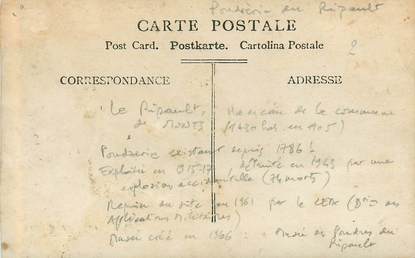 Poudrerie du Ripault
CARTE POSTALE
2
Post Card. Postkarte. Cartolina Postale
CORRESPONDANCE
ADRESSE
Le Ripault, de la commune
de MONTS en 1905)
Poudrerie existant depuis 1786
détruite en 1943 par une
explosion accidentelle (74 morts)
Reprise du site en 1961 par le
Applications Militaires)
Musée créé en 1966 : Musée des poudres du
Ripault